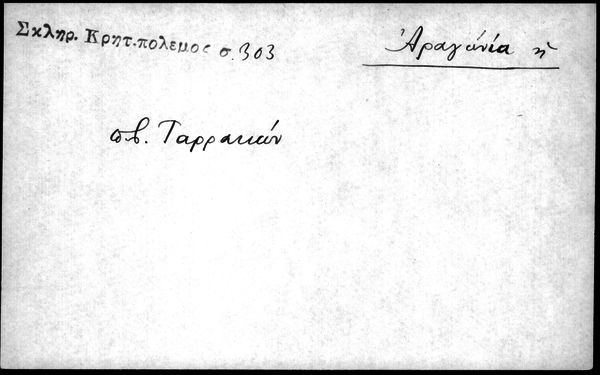 Σκληρ. Κρητ.πολεμος σ.303
Ἀραγωνία ἡ
πβ. Ταρρακών